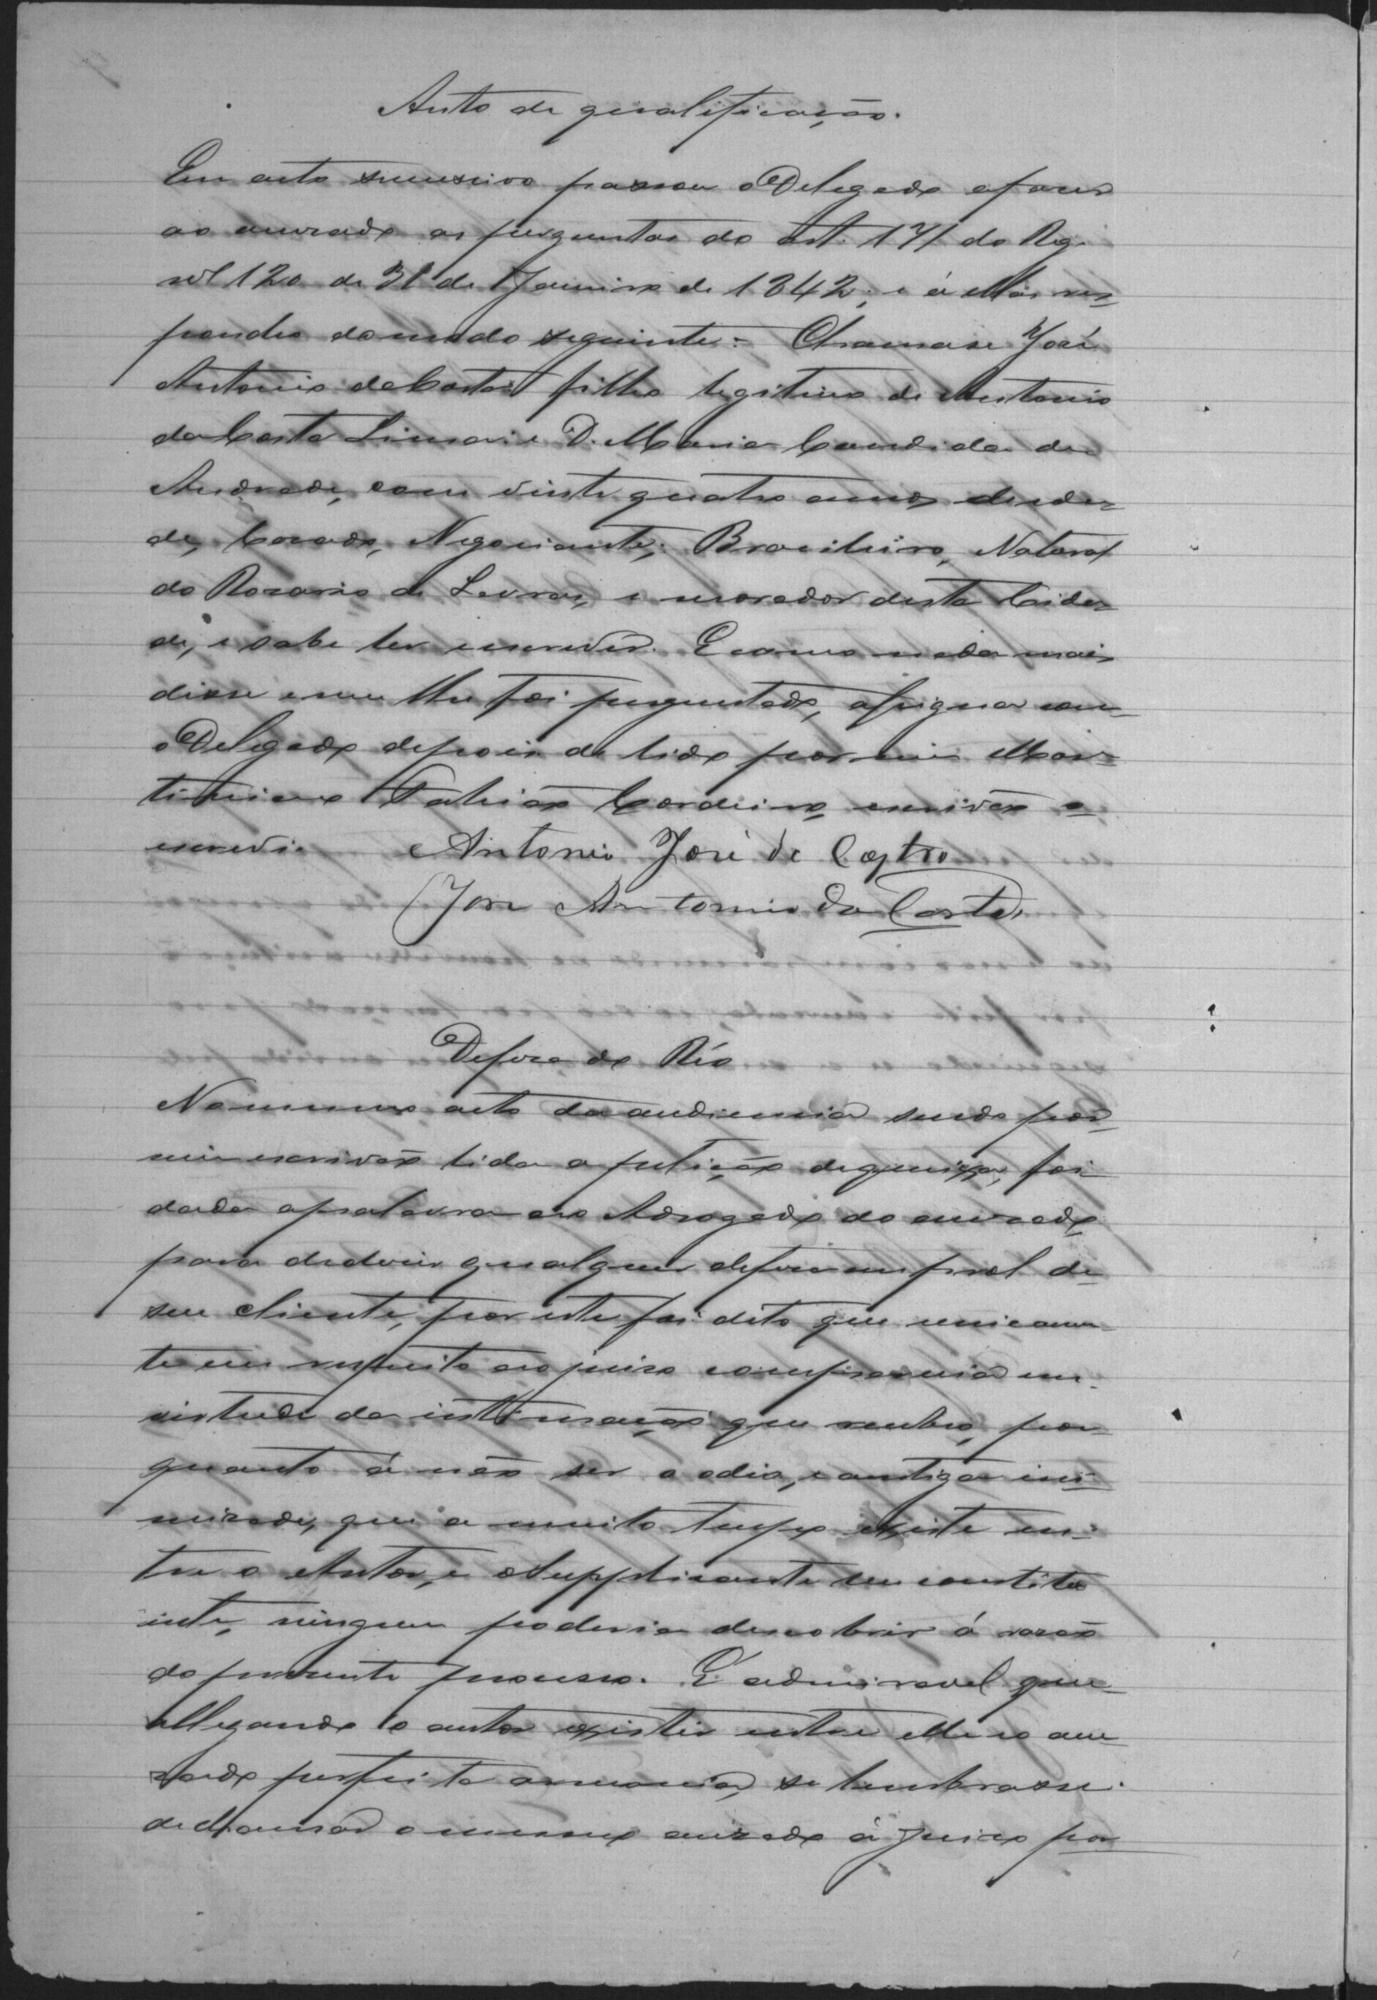 Auto de qualificação.
Em acto sucessivo passou o Delegado a fazer
ao accusado as perguntas do art. 171 do Reg.
nº 120 de 31 de Janeiro de 1842, e á ellas res-
pondeo do modo seguinte: Chamarse José
Antonio da Costa filho legitimo de Antonio
da Costa Lima e D. Maria Candida de
Andrade, com vinte quatro annos de ida-
de, Casado, Negociante, Brasileiro, Natural
do Rosario de Lavras, e morador desta Cida-
de, e sabe ler escrever. E como nada mais
disse e nem lhe foi perguntado, assigna com
o Delegado depois de lido por mim Mar-
timiano Fabião Cordeiro, escrivão o
escrevi. Antonio José de Castro
Jose Antonio da Costa
Defeza do Réo
No mesmo acto da audiencia sendo por
mim escrivão lida a petição de queixa, foi
dada a palavra ao Advogado do accusado
para dedusir qualquer defeza em prol de
seu cliente, por este foi dito que unicamen-
te em respeito ao juiso comparecia em
virtude da intimação que recebeo, por
quanto á não ser o odio, e antiga ini-
misade, que a muito tempo existe en-
tre o Autor, e o Supplicante seu constitu
inte, ninguem poderia descobrir á rasão
do presente processo. É admiravel que
allegando o autor existir entre elle e o accu
sado perfeita armonia, se lembrasse
de chamar o mesmo accusado á Juiso por